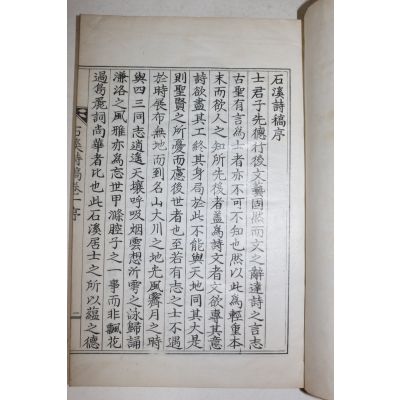 石溪詩稿序
士君子先德行後文藝固然而文之辭達詩之言志
古聖有言為士者亦不可不知也然以此為輕重本
末而欲人之知所先後者蓋為詩文者文欲專其意
詩欲盡其工終其身局於此不能與天地同其大是
則聖賢之所憂而慮後世者也至若有志之士不遇
於時展布無地而到名山大川之地光風霽月之時
與四三同志逍遙天壤呼吸烟雲想沂雩之詠歸誦
濂洛之風雅亦為忘世甲滌腔子之一事而非飄花
過鳥麗詞尚華者比也此石溪居士之所以蘊之德
石溪詩稿卷一序
一